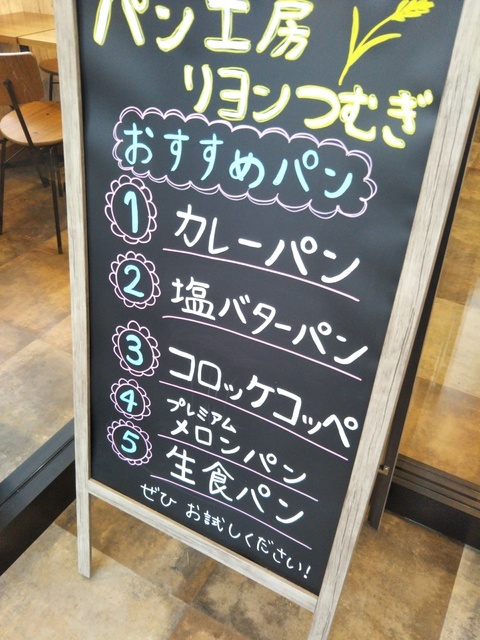 パン工房
リヨンつむぎ
おすすめパン
1 カレーパン
2 塩バターパン
3 コロッケコッペ
4 プレミアム
メロンパン
5 生食パン
ぜひ お試しください!